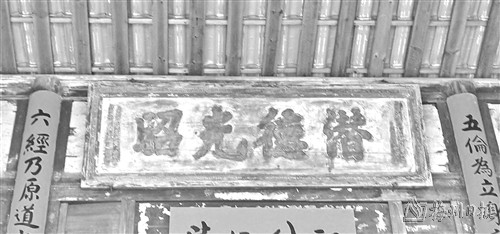 潛德光昭
五倫為立
六經乃原道
梅州日报